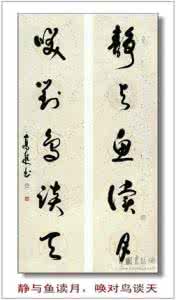 靜与魚讀月
喚對鳥談天
静与鱼读月，唤对鸟谈天